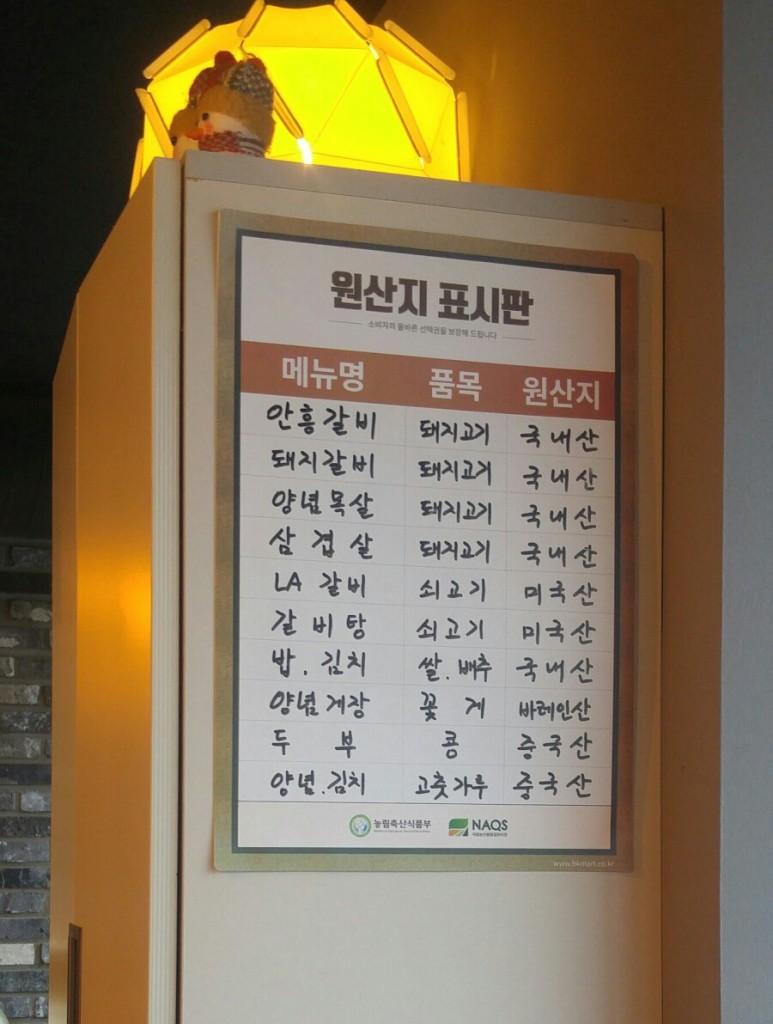 원산지 표시판
소비자의 올바른 선택권을 보장해 드립니다
메뉴명 품목 원산지
안흥갈비 돼지고기 국내산
돼지갈비 돼지고기 국내산
양념목살 돼지고기 국내산
삼겹살 돼지고기 국내산
LA 갈비 쇠고기 미국산
갈비탕 쇠고기 미국산
밥.김치 쌀.배추 국내산
양념게장 꽃게 바레인산
두부 콩 중국산
양념.김치 고춧가루 중국산
농림축산식품부 NAQS
www.bkmart.co.kr